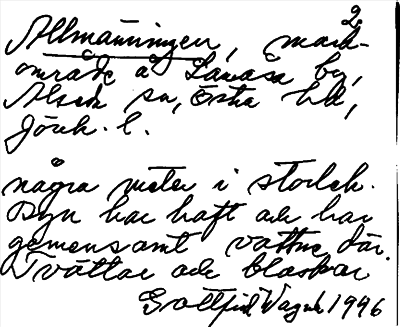 2.
Allmänningen, mark-
område å Lanåsa by,
Alseda sn, Östra hd,
Jönk. l.
några meter i storlek.
Byn har haft och har
gemensamt vatten där.
Tvättar och blaskar
Gottfrid Vagnh 1946